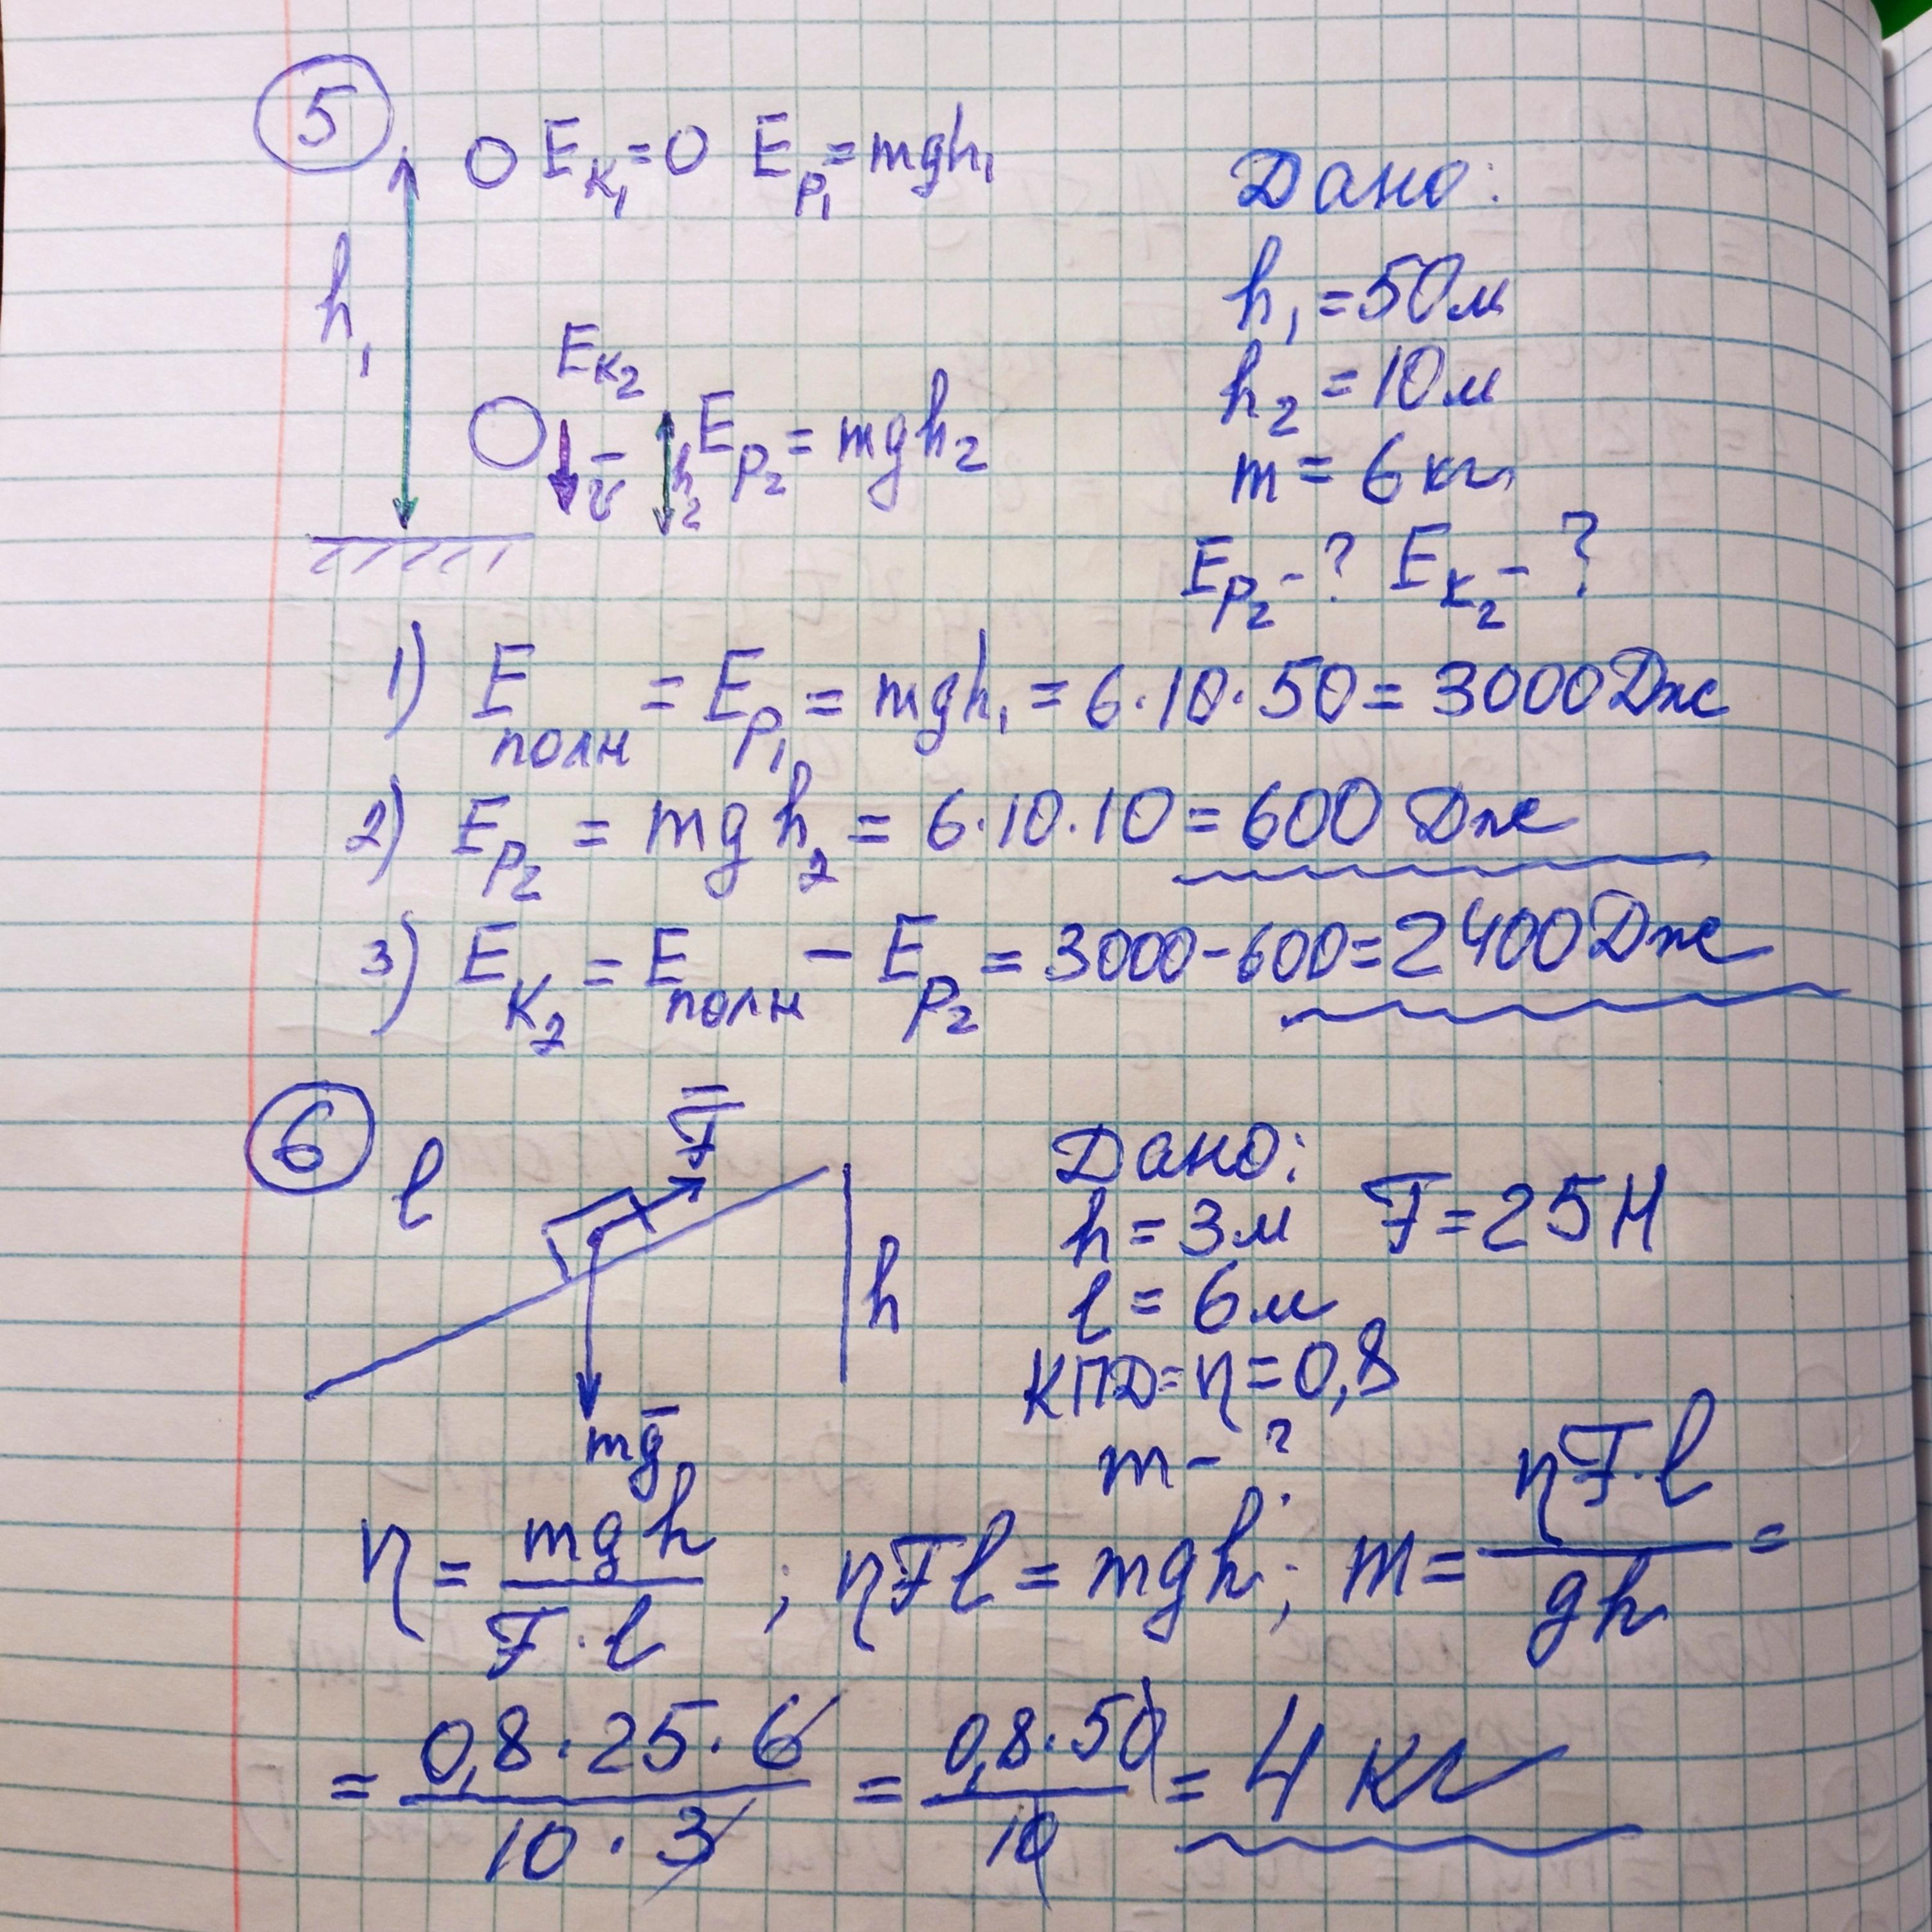 5
E_K₁ = 0 E_P₁ = mgh₁
h₁
E_K₂
v̄ h₂ E_P₂ = mgh₂
Дано:
h₁ = 50м
h₂ = 10м
m = 6кг
E_P₂ - ? E_K₂ - ?
1) E_полн = E_P₁ = mgh₁ = 6·10·50 = 3000Дж
2) E_P₂ = mgh₂ = 6·10·10 = 600 Дж
3) E_K₂ = E_полн - E_P₂ = 3000-600=2400Дж
6
l F̄
h
mḡ
Дано:
h = 3м F = 25Н
l = 6м
КПД = η = 0,8
m - ?
η = mgh / F·l ; ηFl = mgh; m = ηF·l / gh =
= 0,8·25·6 / 10·3 = 0,8·50 / 10 = 4 кг